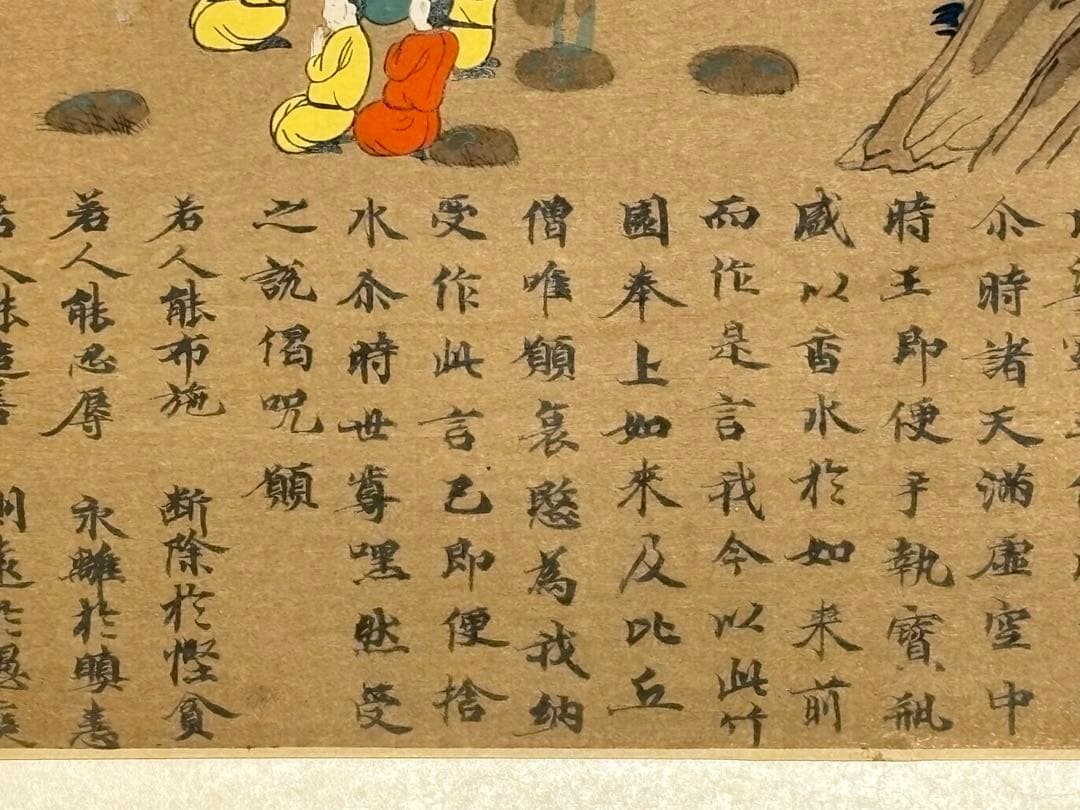 尒時諸天滿虛空中
時王即便手執寶瓶
盛以香水於如来前
而作是言我今以此竹
園奉上如来及比丘
僧唯願哀愍為我納
受作此言已即便捨
水尒時世尊嘿然受
之說偈呪願
若人能布施 断除於慳貪
若人能忍辱 永離於瞋恚